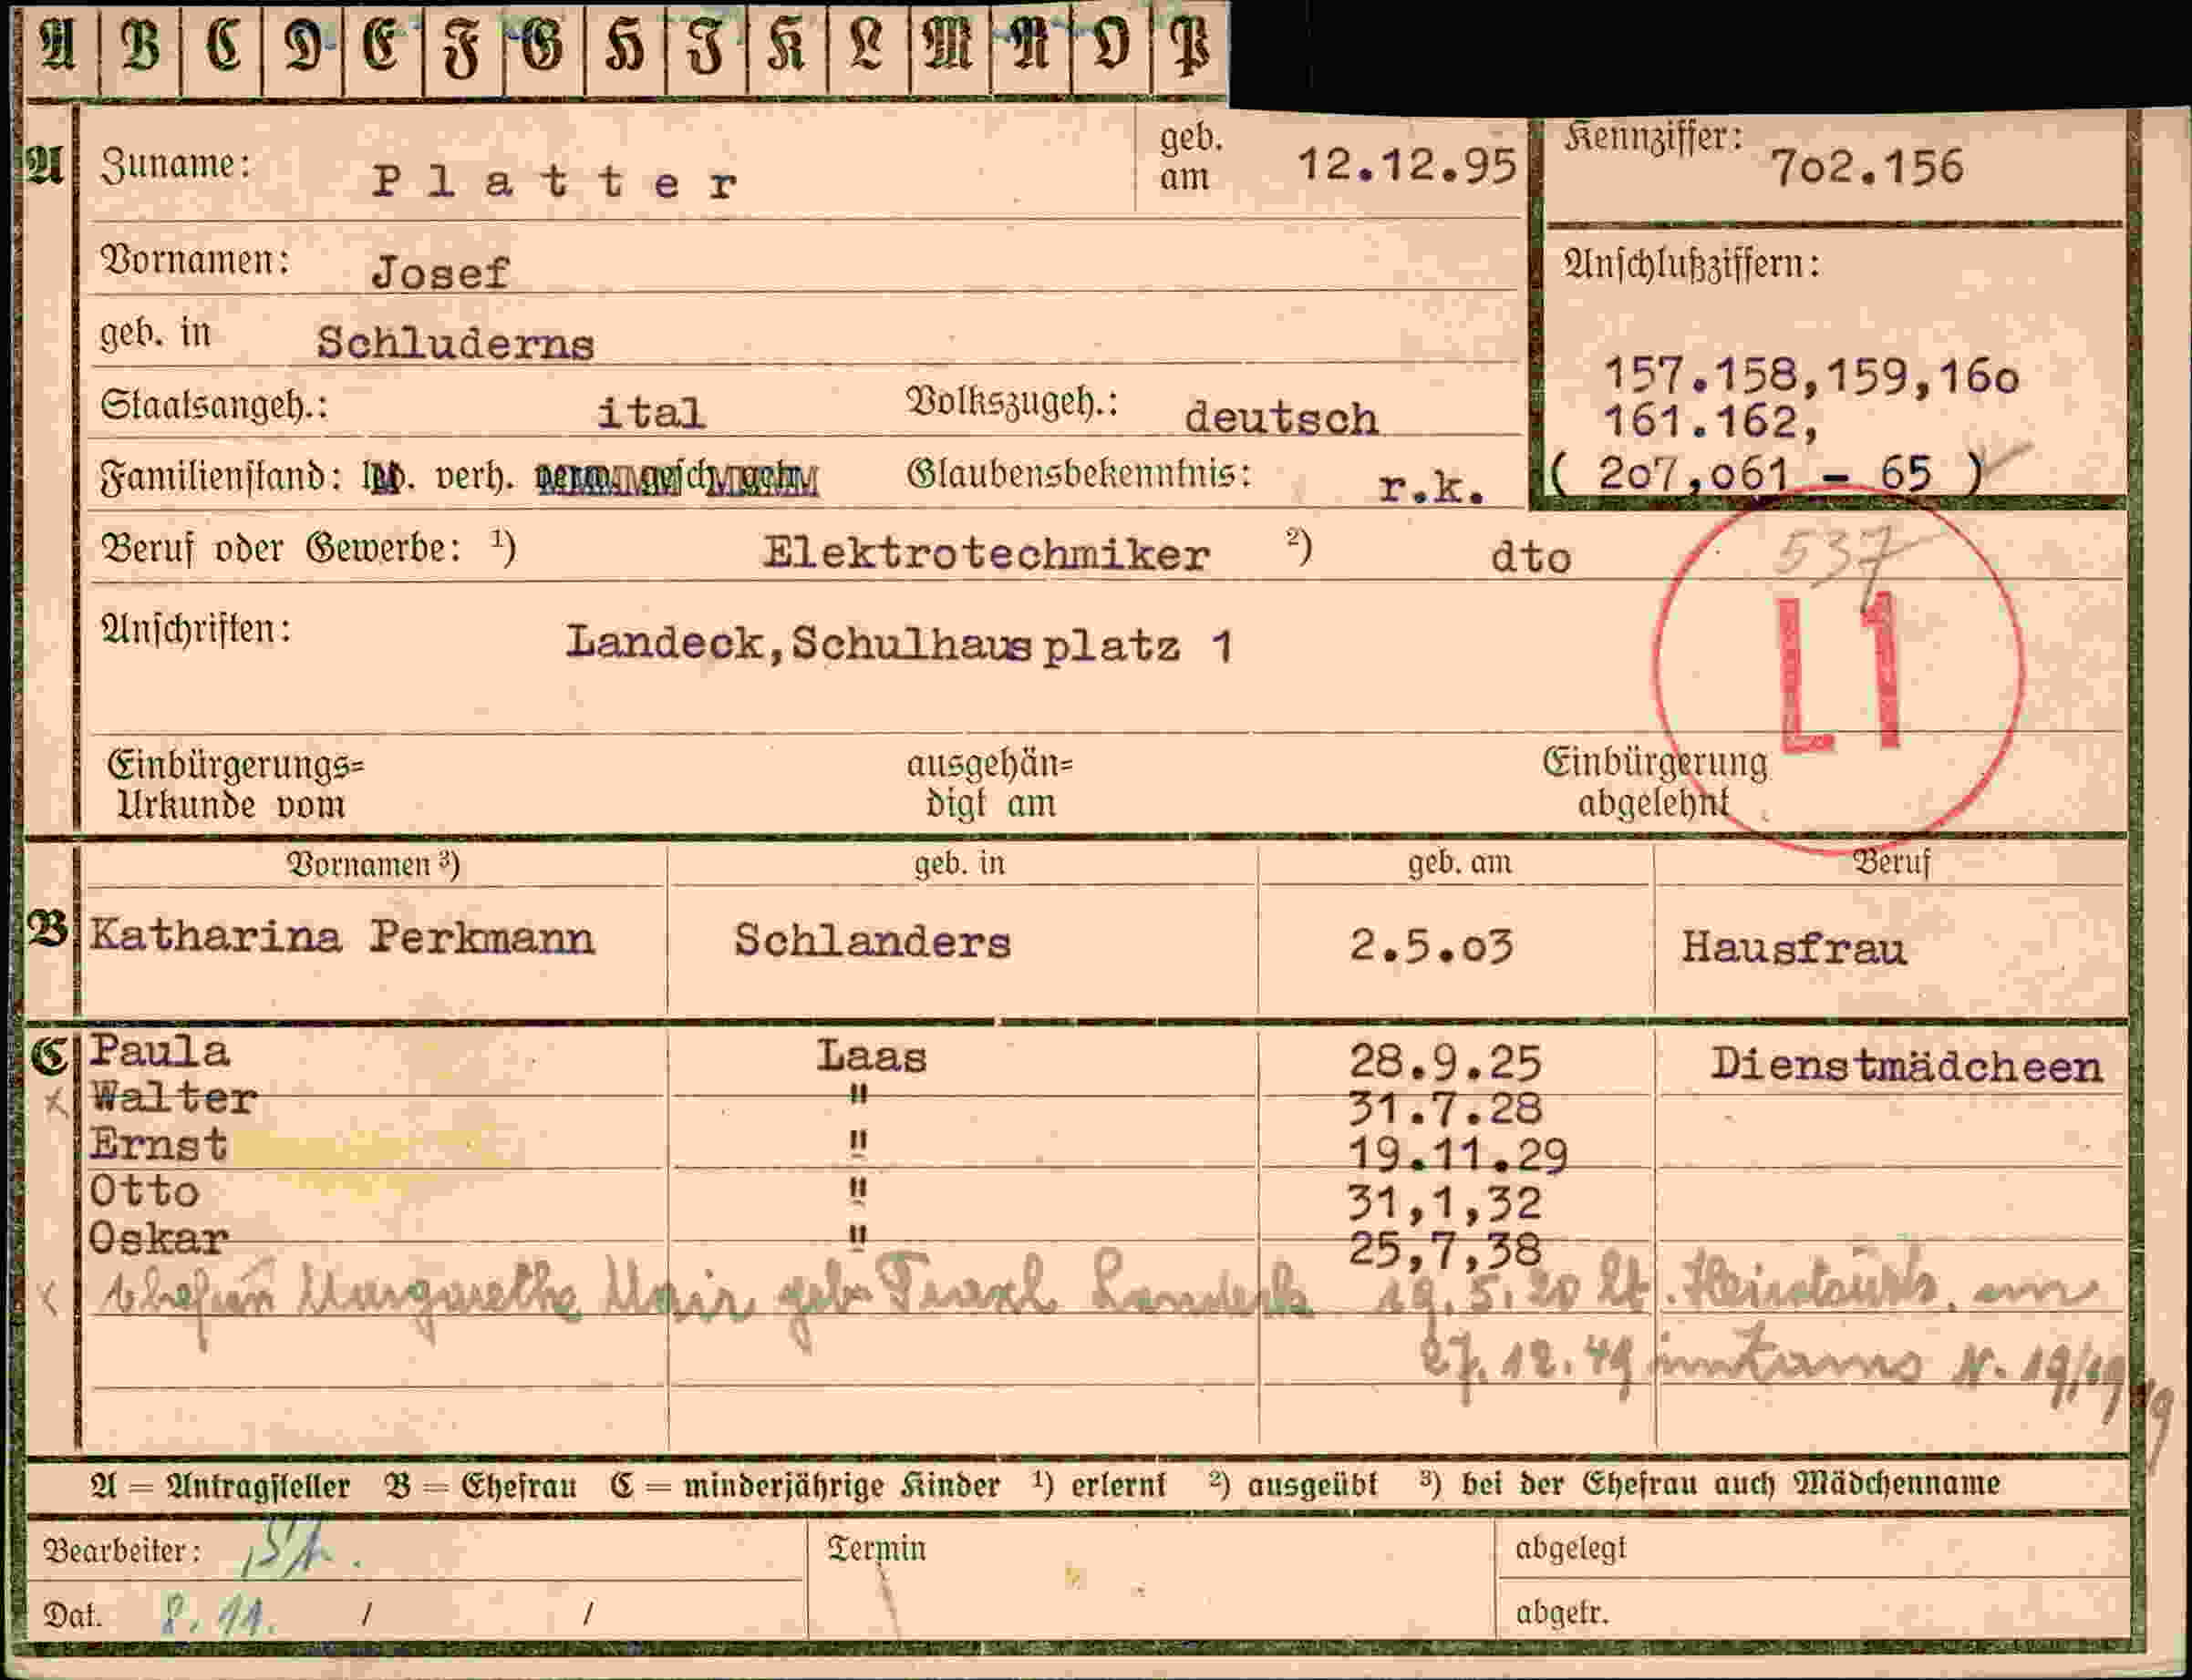 A B C D E F G H I K L M N O P
A Zuname: Platter geb. am 12.12.95 Kennziffer: 702.156
Vornamen: Josef
Anschlußziffern:
geb. in Schluderns
157.158,159,160
Staatsangeh.: ital Volkszugeh.: deutsch
161.162,
Familienstand: verh. Glaubensbekenntnis: r.k.
( 207,061 - 65 )
537
Beruf oder Gewerbe: 1) Elektrotechmiker 2) dto
L1
Anschriften: Landeck,Schulhausplatz 1
Einbürgerungs= Urkunde vom ausgehän= digt am Einbürgerung abgelehnt
Vornamen 3) geb. in geb. am Beruf
B Katharina Perkmann Schlanders 2.5.03 Hausfrau
C Paula Laas 28.9.25 Dienstmädcheen
x Walter " 31.7.28
Ernst " 19.11.29
Otto " 31,1,32
Oskar " 25,7,38
Margarethe Mair geb. Landeck 19.5.20 lt. am
27.12.49 N. 19/1949
A = Antragsteller B = Ehefrau C = minderjährige Kinder 1) erlernt 2) ausgeübt 3) bei der Ehefrau auch Mädchenname
Bearbeiter: Termin abgelegt
Dat. 8.11. / / abgetr.